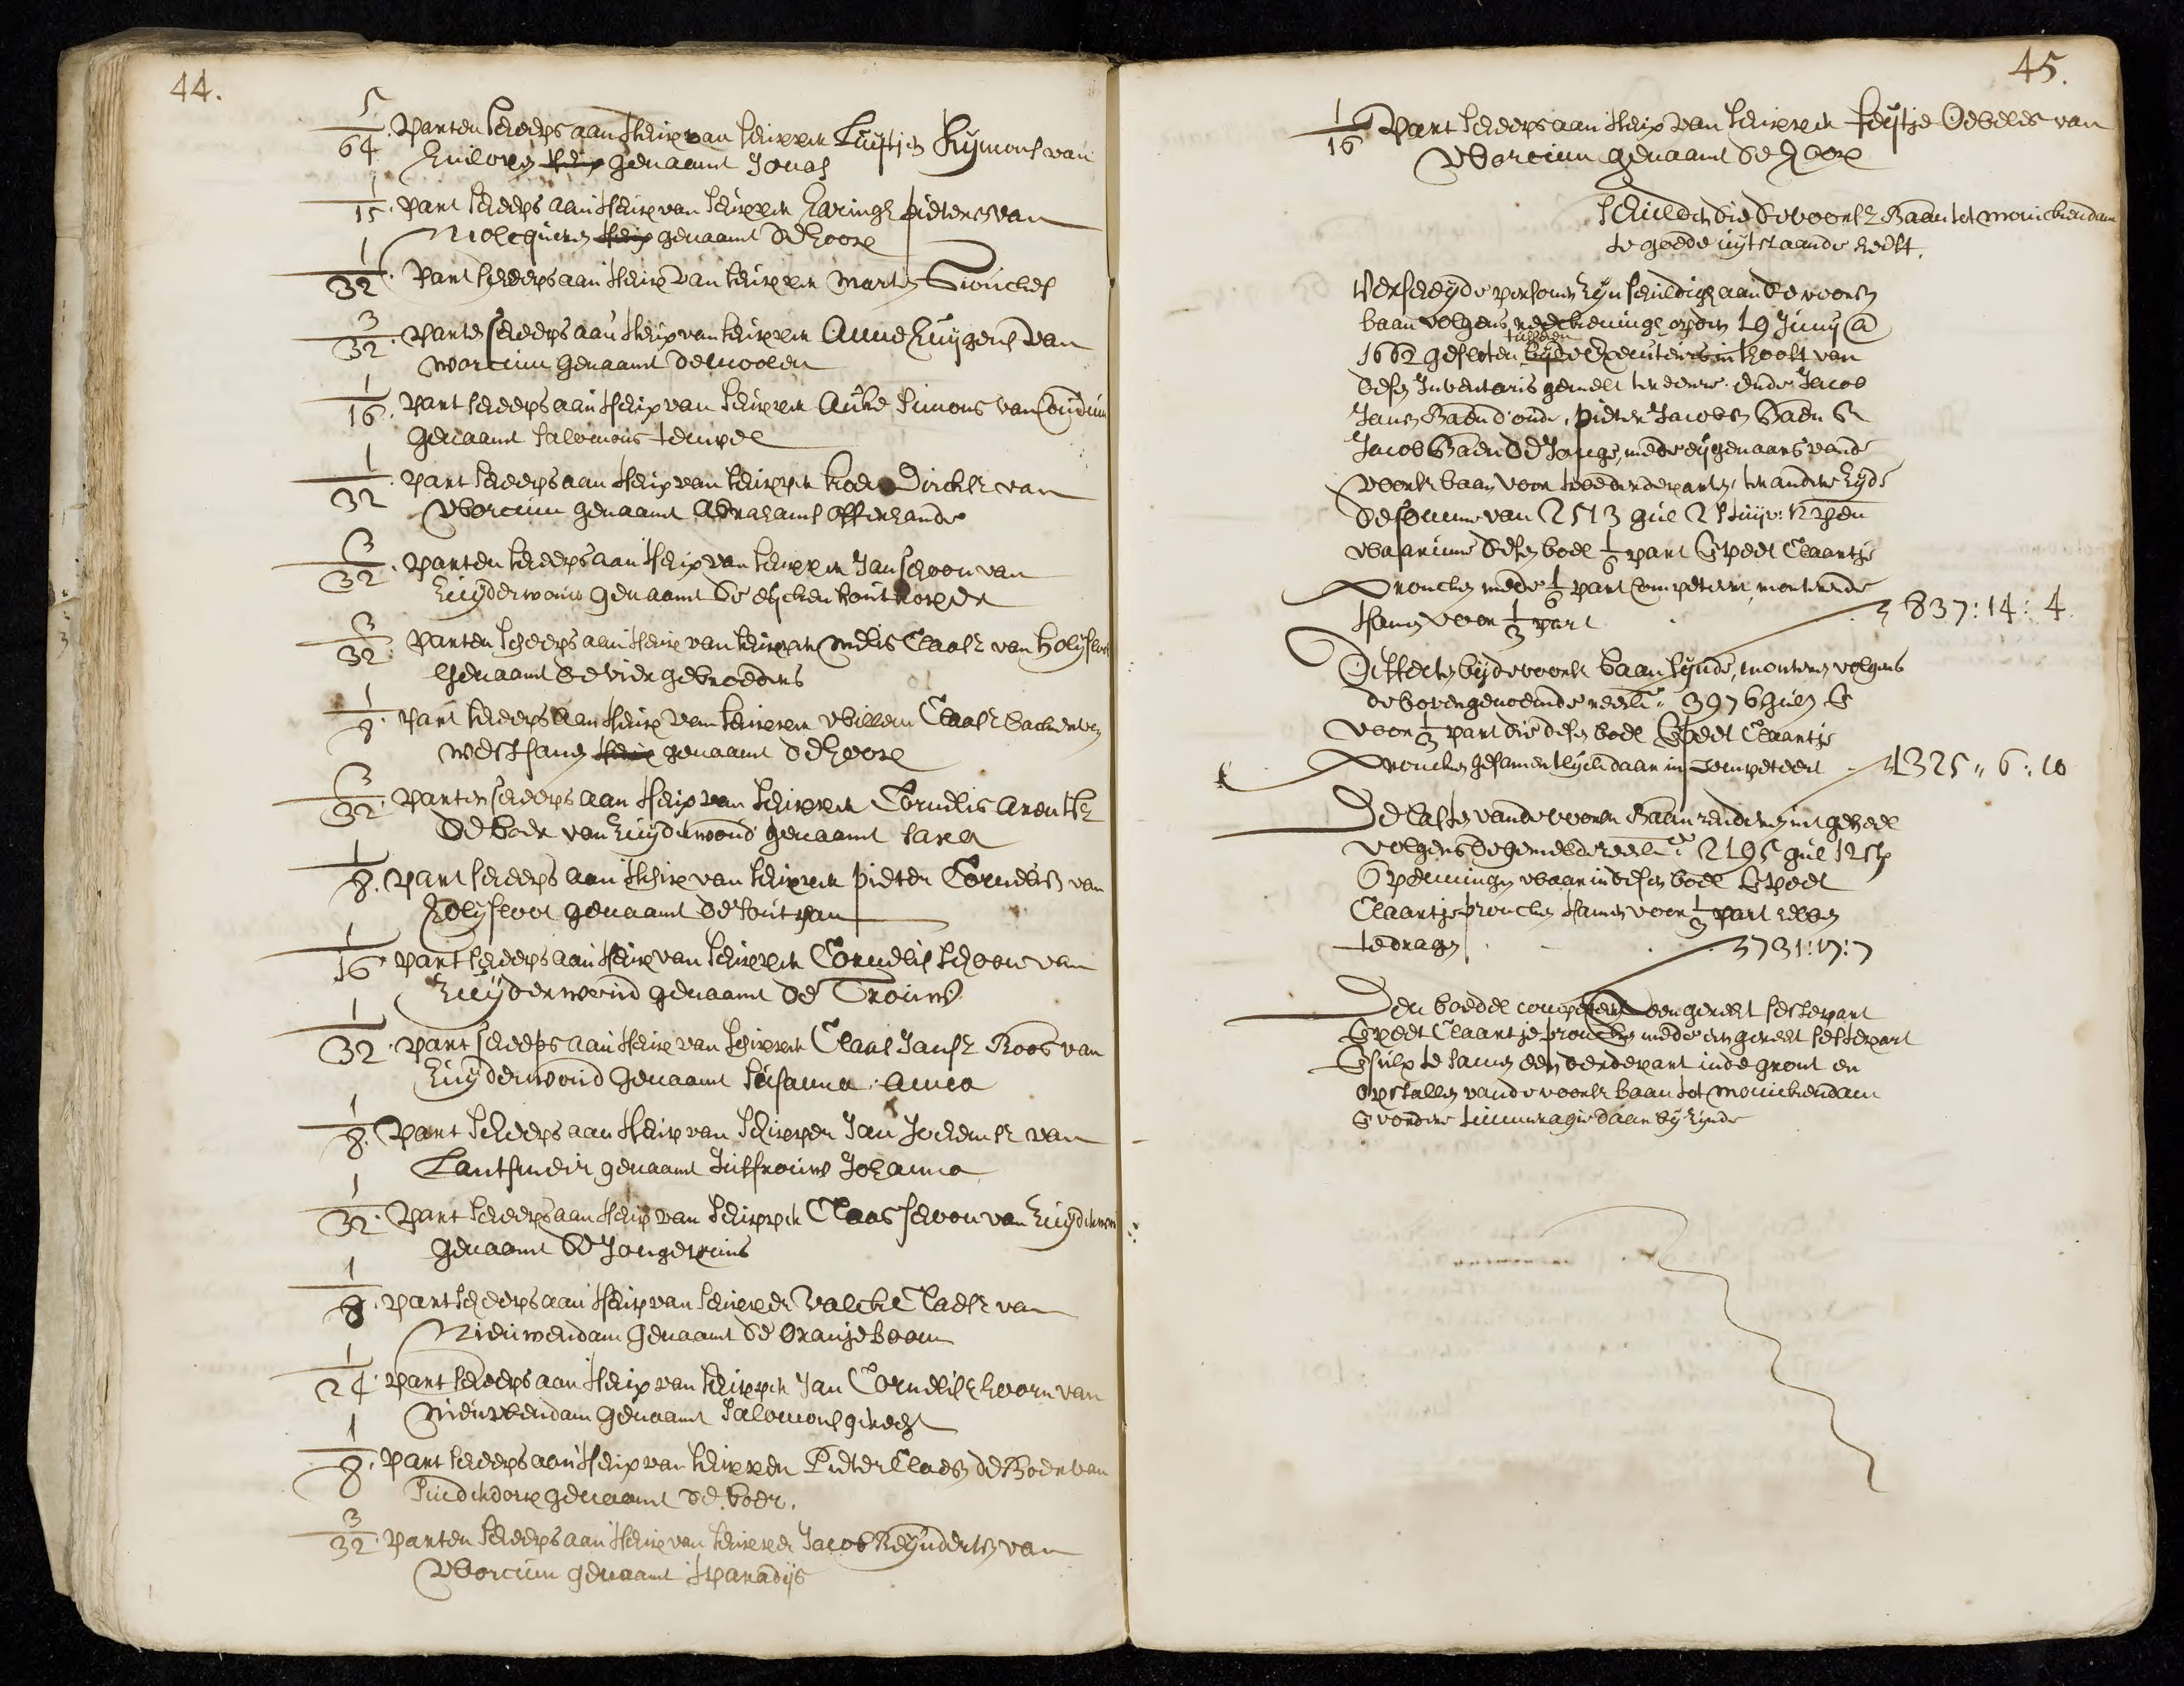 44.
5/64 Parten scheeps aan 't schip van schipper Luijtjen Sijmons van
genaamt Jonas
1/15 part scheeps aan 't schip van schipper Harings pieters van
Molcqueren genaamt de hoop
1/32 Part scheeps aan 't schip van schipper Marten Siouckes
3/32 parten scheeps aan 't schip van schipper Anne Huijgens van
worcum genaamt de moolen
1/16 Part scheeps aan 't schip van schipper Auke Simons van Coudum
genaamt Salomons tempel
1/32 part scheeps aan 't schip van schipper Dircksz van
Worcum genaamt Abrahams offerhande
3/32 parten scheeps aan 't schip van schipper Jan schoon van
Zuijderwou genaamt de eijcken houtkoper
3/32 Parten scheeps aan 't schip van schipper Melis Claasz van Holijsloot
genaamt de vier gebroeders
1/8 part scheeps aan 't schip van schipper Willem Claasz backer
westsanen genaamt de hoop
3/32 Parten scheeps aan 't schip van schipper Cornelis Arentsz
de boer van Zuijderwoud genaamt Sara
1/8 part scheeps aan 't schip van schipper pieter Cornelisz van
Holijsloot genaamt de soutpan
1/16 part scheeps aan 't schip van schipper Cornelis schoon van
Zuijderwoud genaamt de Trouw
1/32 part scheeps aan 't schip van schipper Claas Jansz Roos van
Zuijderwoud genaamt Susanna Anna
1/8 Part scheeps aan 't schip van schipper Jan Jochemsz van
Lantsmeir genaamt Juffrouw Johanna
1/32 Part scheeps aan 't schip van schipper Claas schoon van Zuijderwou
genaamt de Jonge prins
1/8 part scheeps aan 't schip van schipper Valck Claesz van
Nieuwendam genaamt de Oranjeboom
1/24 part scheeps aan 't schip van schipper Jan Cornelisz hoorn van
Nieuwendam genaamt Salomons gerecht
1/8 Part scheeps aan 't schip van schipper Pieter Claesz de Boer van
Suiderdorp genaamt de boer.
3/32 parten scheeps aan 't schip van schipper Jacob Reijnderts van
Worcum genaamt 't paradijs
45.
1/16 Part scheeps aan 't schip van schipper feijtje Oebeles van
Worcum genaamt de Hoop
Schulden die de voorsz Baan tot monickendam
te goede uijtstaande heeft.
Verscheijde persoonen zijn schuldigh aan de voorsz
baan volgens reeckeninge op den 19 Junij a
1662 gesloten tusschen de Executeurs in 't hooft van
desen Inventaris gemelt ter eenre ende Jacob
Jansz Baen d'oude, pieter Jacobsz Baen &
Jacob Baen de Jonge, mede eijgenaars vande
voorsz baan voor twee derde parten, ter andere zijde
de somme van 2513 gul 2 stuijv: 12 pen
waarinne desen boel 1/6 part & peet Claartje
Proncken mede 1/6 part Competeert, monterende
tsamen voor 1/3 part ƒ 837:14:4
Effecten bij de voorsz baan sijnde, monteren volgens
de bovengenoemde reeck: 3976 gulden &
voor 1/3 part die desen boel & peet Claartje
Proncken gesamentlijck daar in competeert 1325,,6:10
De lasten vande voorsz Baan rendeeren int geheel
volgens de gemelde reeck: 2195 gul 12 st
6 penningen waar in desen boel & peet
Claartje proncken tsamen voor 1/3 part hebben
te dragen 731:17:7
Den boedel competeert een gerecht seste part
& peet Claartje proncken mede een gerecht seste part
& sulx te samen een derde part inde gront en
opstallen vande voorsz baan tot monickendam
& vordere timmeragie daar bij zijnde